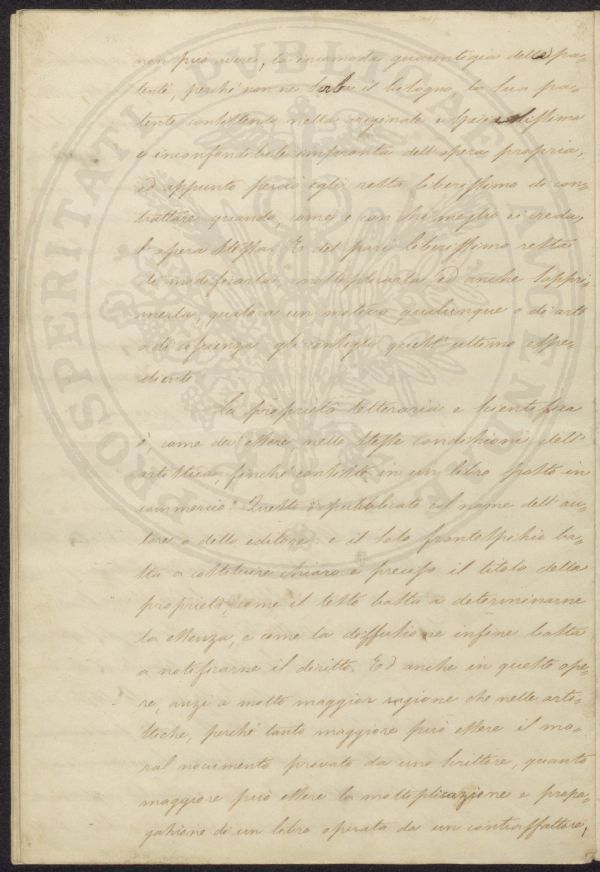 non può avere, la incomoda guarentigia della pa-
tente, perché non ne ebbe il bisogno, la sua pa-
tente consistendo nella originale e specialissima
e inconfondibile impronta dell'opera propria,
ed appunto perciò egli resta liberissimo di con-
trattare quando, come, e con chi meglio ei creda,
l'opera stessa. Ei del pari liberissimo resta
di modificarla, moltiplicarla, ed anche soppri-
merla, qualora un motivo qualunque o di arte
o di scienza gli consigli quest'ultimo espe-
diente.
La proprietà letteraria e scientifica
è, come dev'essere nelle stesse condizioni dell'
artistica, finché consiste in un libro posto in
commercio. Questo è pubblicato col nome dell'au-
tore o dello editore: e il solo frontespizio ba-
sta a costituire chiaro e preciso il titolo della
proprietà, come il testo basta a determinarne
la essenza, e come la diffusione infine basta
a notificarne il diritto. Ed anche in queste ope-
re, anzi a molto maggior ragione che nelle arti-
stiche, perché tanto maggiore può essere il mo-
ral nocumento provato da uno scrittore, quanto
maggiore può essere la moltiplicazione e propa-
gazione di un libro operata da un contraffattore,
PROSPERITATI PUBLICAE AUGENDAE